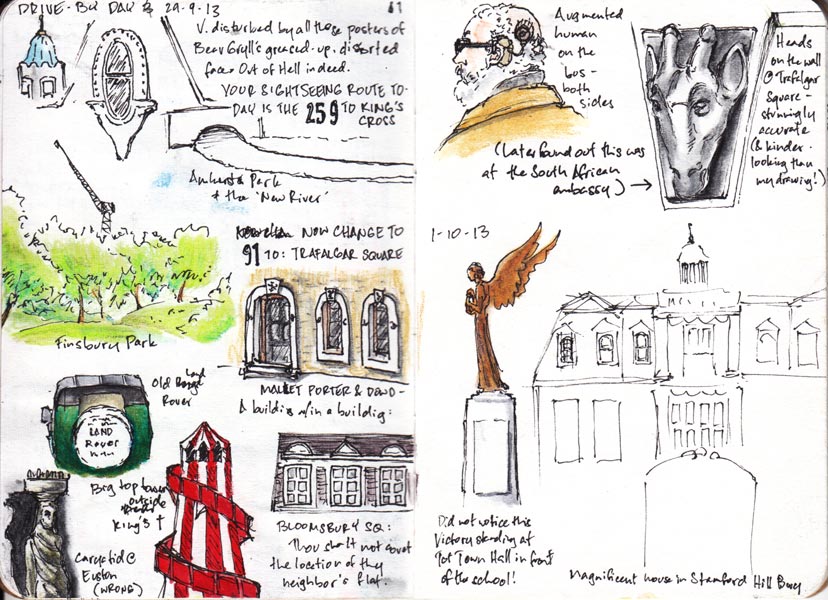 DRIVE-BY DAY 2 29-9-13
V. disturbed by all those posters of
Bear Grylls greased-up, distorted
face. Out of Hell indeed.
YOUR SIGHTSEEING ROUTE TO-
DAY IS THE 259 TO KING'S
CROSS
Amhurst Park
& the 'New River'
NOW CHANGE TO
91 TO: TRAFALGAR SQUARE
Finsbury Park
MALLET PORTER & DOWD -
A building w/in a building:
Old Range
Land
Rover
LAND
ROVER
Big top tower
outside
King's †
BLOOMSBURY SQ:
Thou shalt not covet
the location of thy
neighbor's flat.
Caryatid @
Euston
(WRONG)
Augmented
human
on the
bus -
both
sides
(Later found out this was
at the South African
embassy) →
Heads
on the wall
@ Trafalgar
Square -
stunningly
accurate
(& kinder-
looking than
my drawing!)
1-10-13
Did not notice this
Victory standing at
Town Hall in front
of the school!
Magnificent house in Stamford Hill